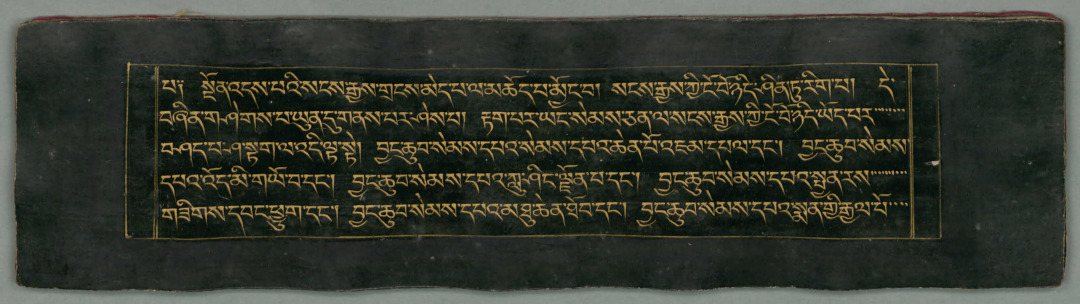 པ༑ སྔོན་འདས་པའི་སངས་རྒྱས་གྲངས་མེད་པ་ལ་མཆོད་པ་མྱོང་བ། སངས་རྒྱས་ཀྱི་ངོ་བོ་ཉིད་ཤིན་ཏུ་རིག་པ། དེ་
བཞིན་གཤེགས་པ་ཡུན་དུ་གནས་པར་ཤེས་པ། རྟག་པར་ཡང་སེམས་ཅན་ལ་སངས་རྒྱས་ཀྱི་ངོ་བོ་ཉིད་ཡོད་པར་
བཤད་པ་ཤ་སྟག་ལ་འདི་ལྟ་སྟེ། བྱང་ཆུབ་སེམས་དཔའ་སེམས་དཔའ་ཆེན་པོ་འཇམ་དཔལ་དང་། བྱང་ཆུབ་སེམས་
དཔའ་འོད་མི་གཡོ་བ་དང་། བྱང་ཆུབ་སེམས་དཔའ་ཀླུ་ཤིང་ལྗོན་པ་དང་། བྱང་ཆུབ་སེམས་དཔའ་སྤྱན་རས་
གཟིགས་དབང་ཕྱུག་དང་། བྱང་ཆུབ་སེམས་དཔའ་མཐུ་ཆེན་ཐོབ་དང་། བྱང་ཆུབ་སེམས་དཔའ་སྨན་གྱི་རྒྱལ་པོ་